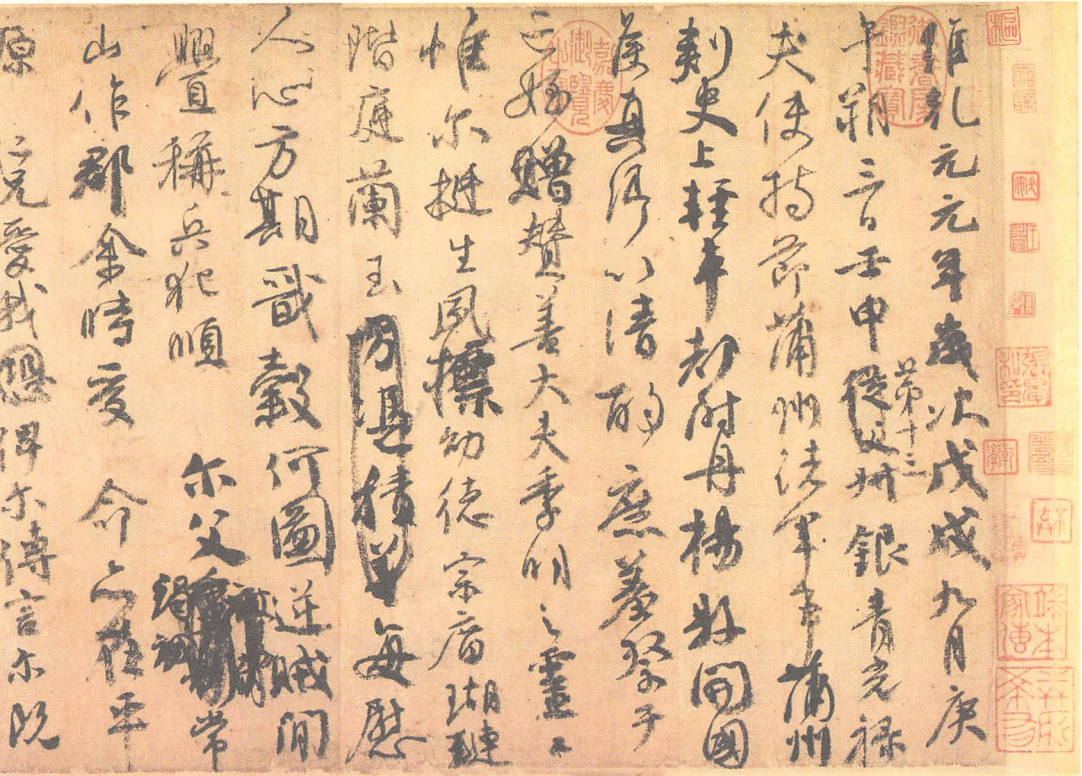 維乾元元年歲次戊戌九月庚
午朔三日壬申第十三從父叔銀青光祿
夫使持節蒲州諸軍事蒲州
刺史上輕車都尉丹楊縣開國
侯真卿以清酌庶羞祭于
亡姪贈贊善大夫季明之靈曰
惟尔挺生夙標幼德宗廟瑚璉
階庭蘭玉方憑積善每慰
人心方期戩穀何圖逆賊閒
釁稱兵犯順尔父竭誠常
山作郡余時受命亦在平
原仁兄愛我恐俾尔傳言尔既